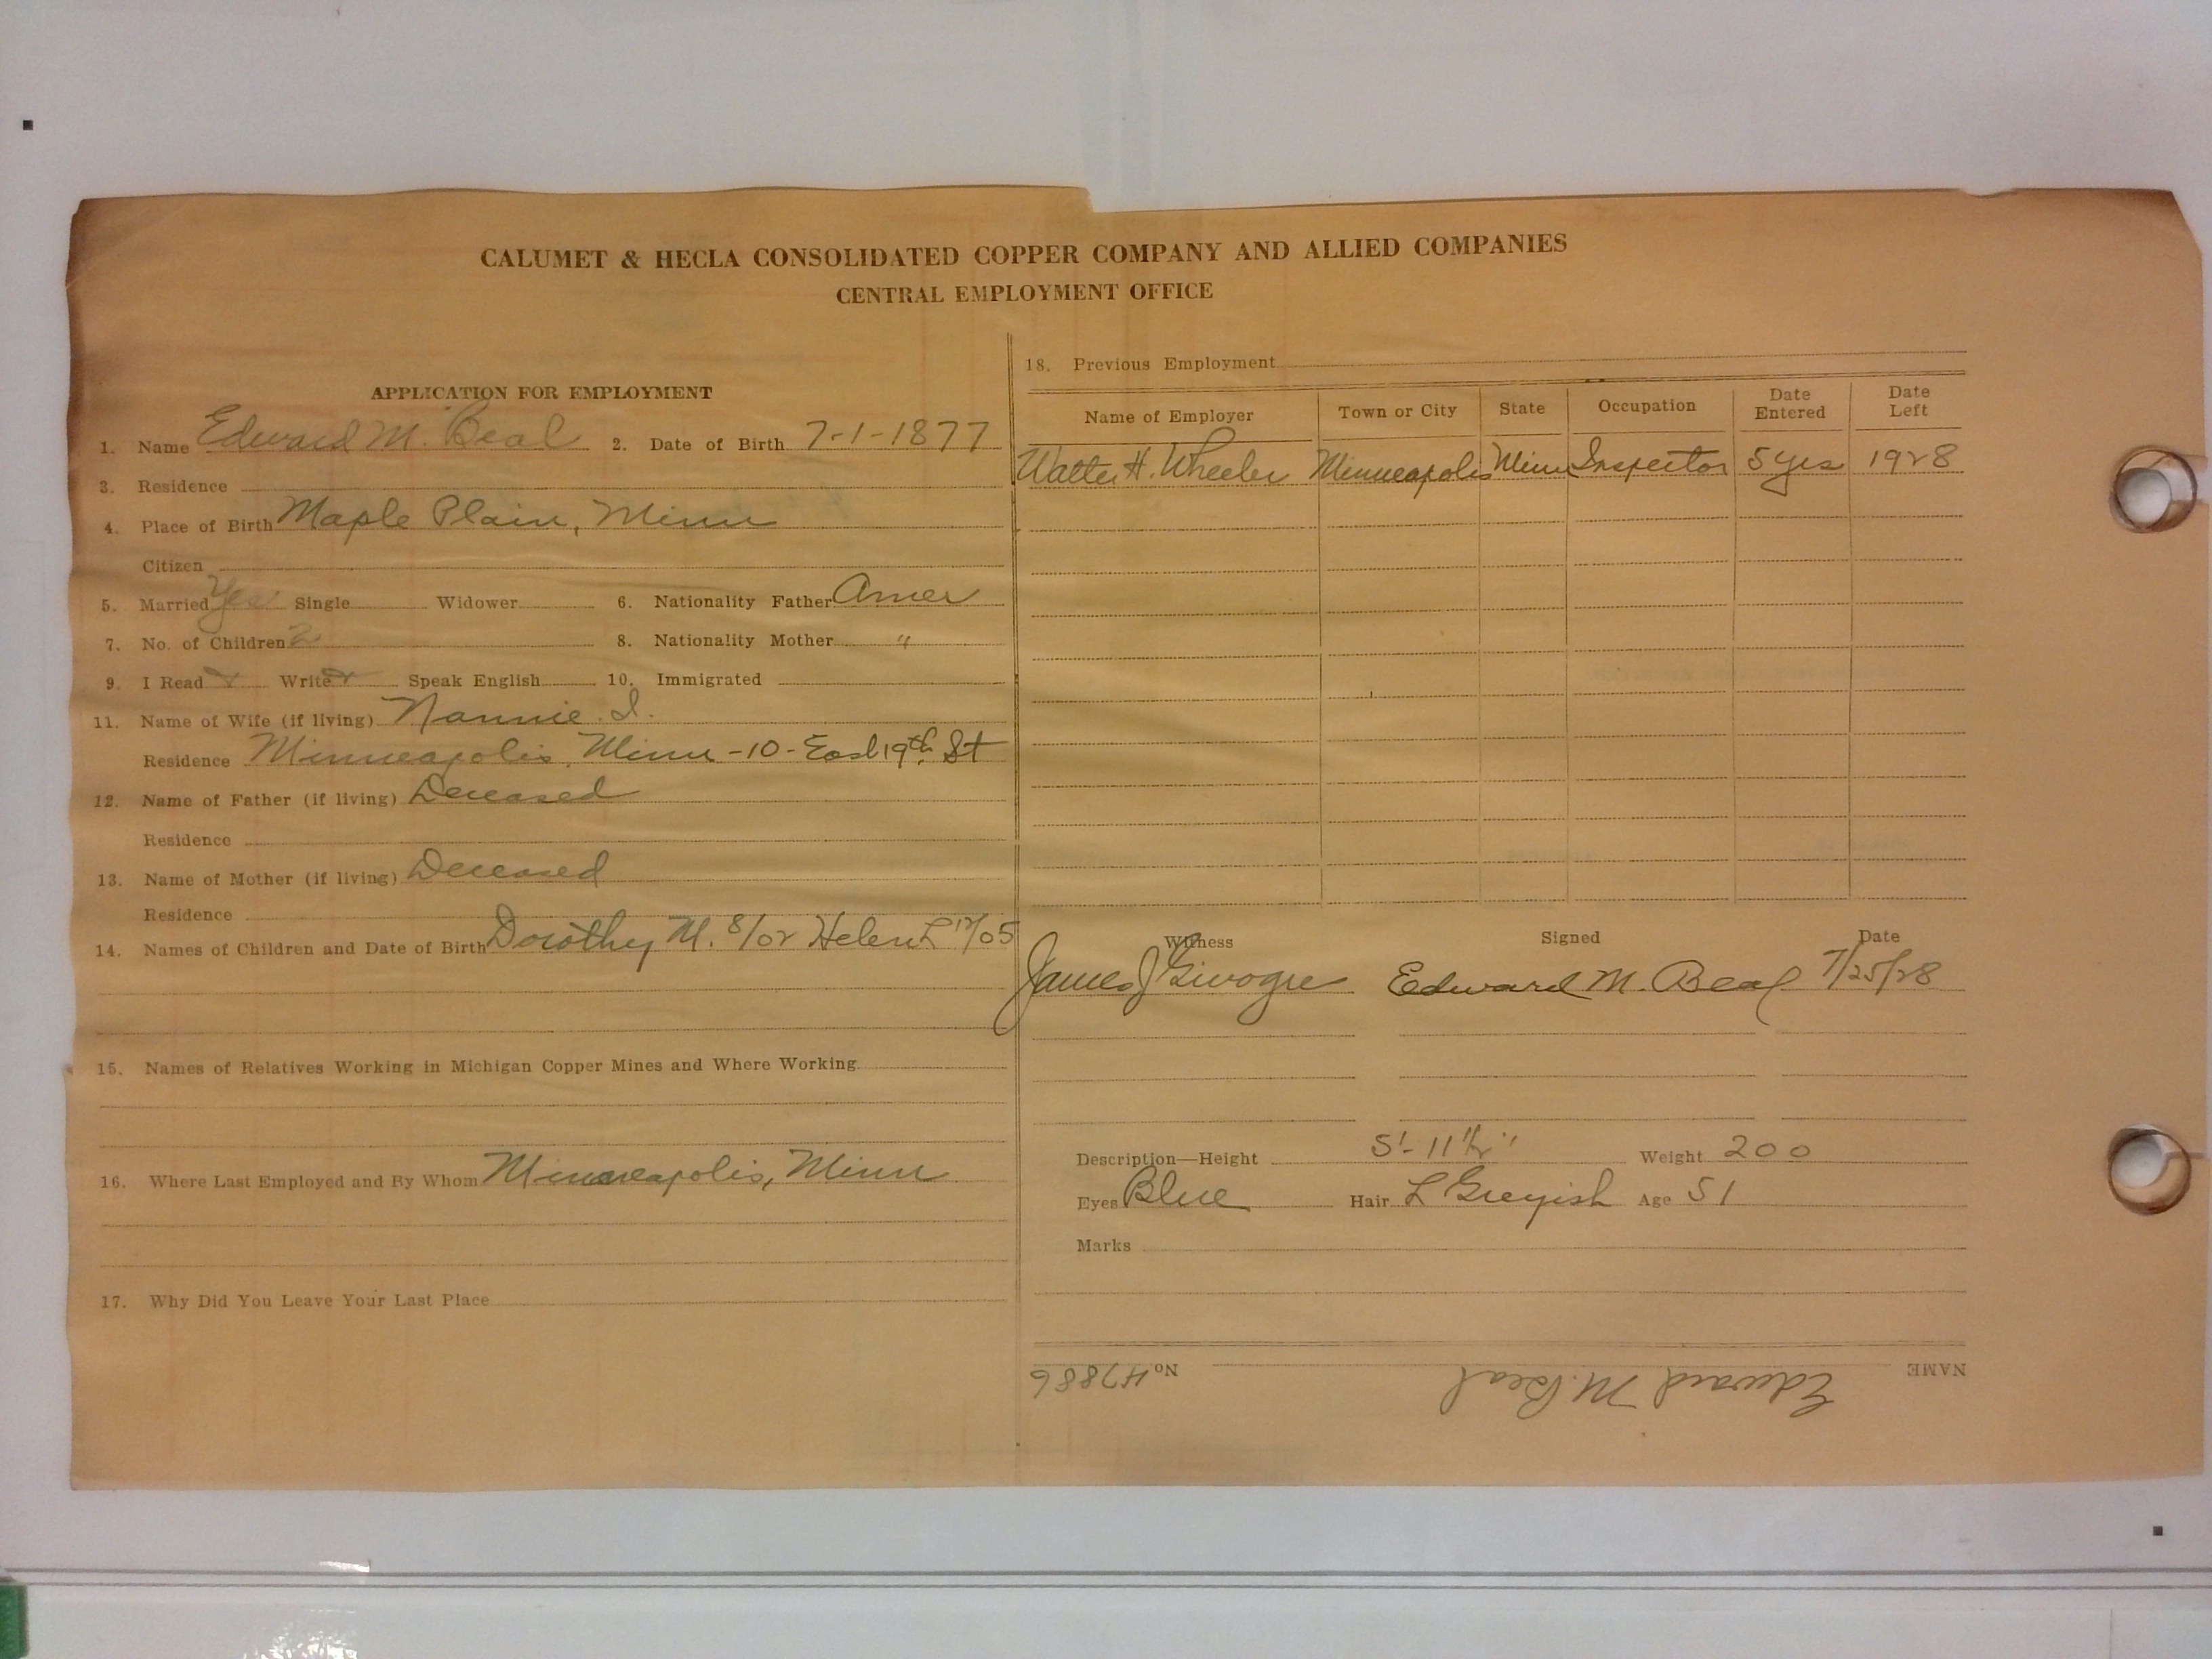 CALUMET & HECLA CONSOLIDATED COPPER COMPANY AND ALLIED COMPANIES
CENTRAL EMPLOYMENT OFFICE
APPLICATION FOR EMPLOYMENT
1. Name Edward M. Beal 2. Date of Birth 7-1-1877
3. Residence
4. Place of Birth Maple Plain, Minn
Citizen
5. Married Yes Single Widower 6. Nationality Father Amer
7. No. of Children 2 8. Nationality Mother "
9. I Read Write Speak English 10. Immigrated
11. Name of Wife (if living) Nannie. I.
Residence Minneapolis, Minn - 10 - East 19th St
12. Name of Father (if living) Deceased
Residence
13. Name of Mother (if living) Deceased
Residence
14. Names of Children and Date of Birth Dorothy M. 8/02 Helen L 12/05
15. Names of Relatives Working in Michigan Copper Mines and Where Working
16. Where Last Employed and By Whom Minneapolis, Minn
17. Why Did You Leave Your Last Place
18. Previous Employment
Name of Employer Town or City State Occupation Date Entered Date Left
Walter H. Wheeler Minneapolis Minn Inspector 5 yrs 1928
Witness Signed Date
James J Edward M. Beal 7/25/28
Description—Height 5'- 11 1/2" Weight 200
Eyes Blue Hair L Greyish Age 51
Marks
NAME Edward M. Beal No 47886